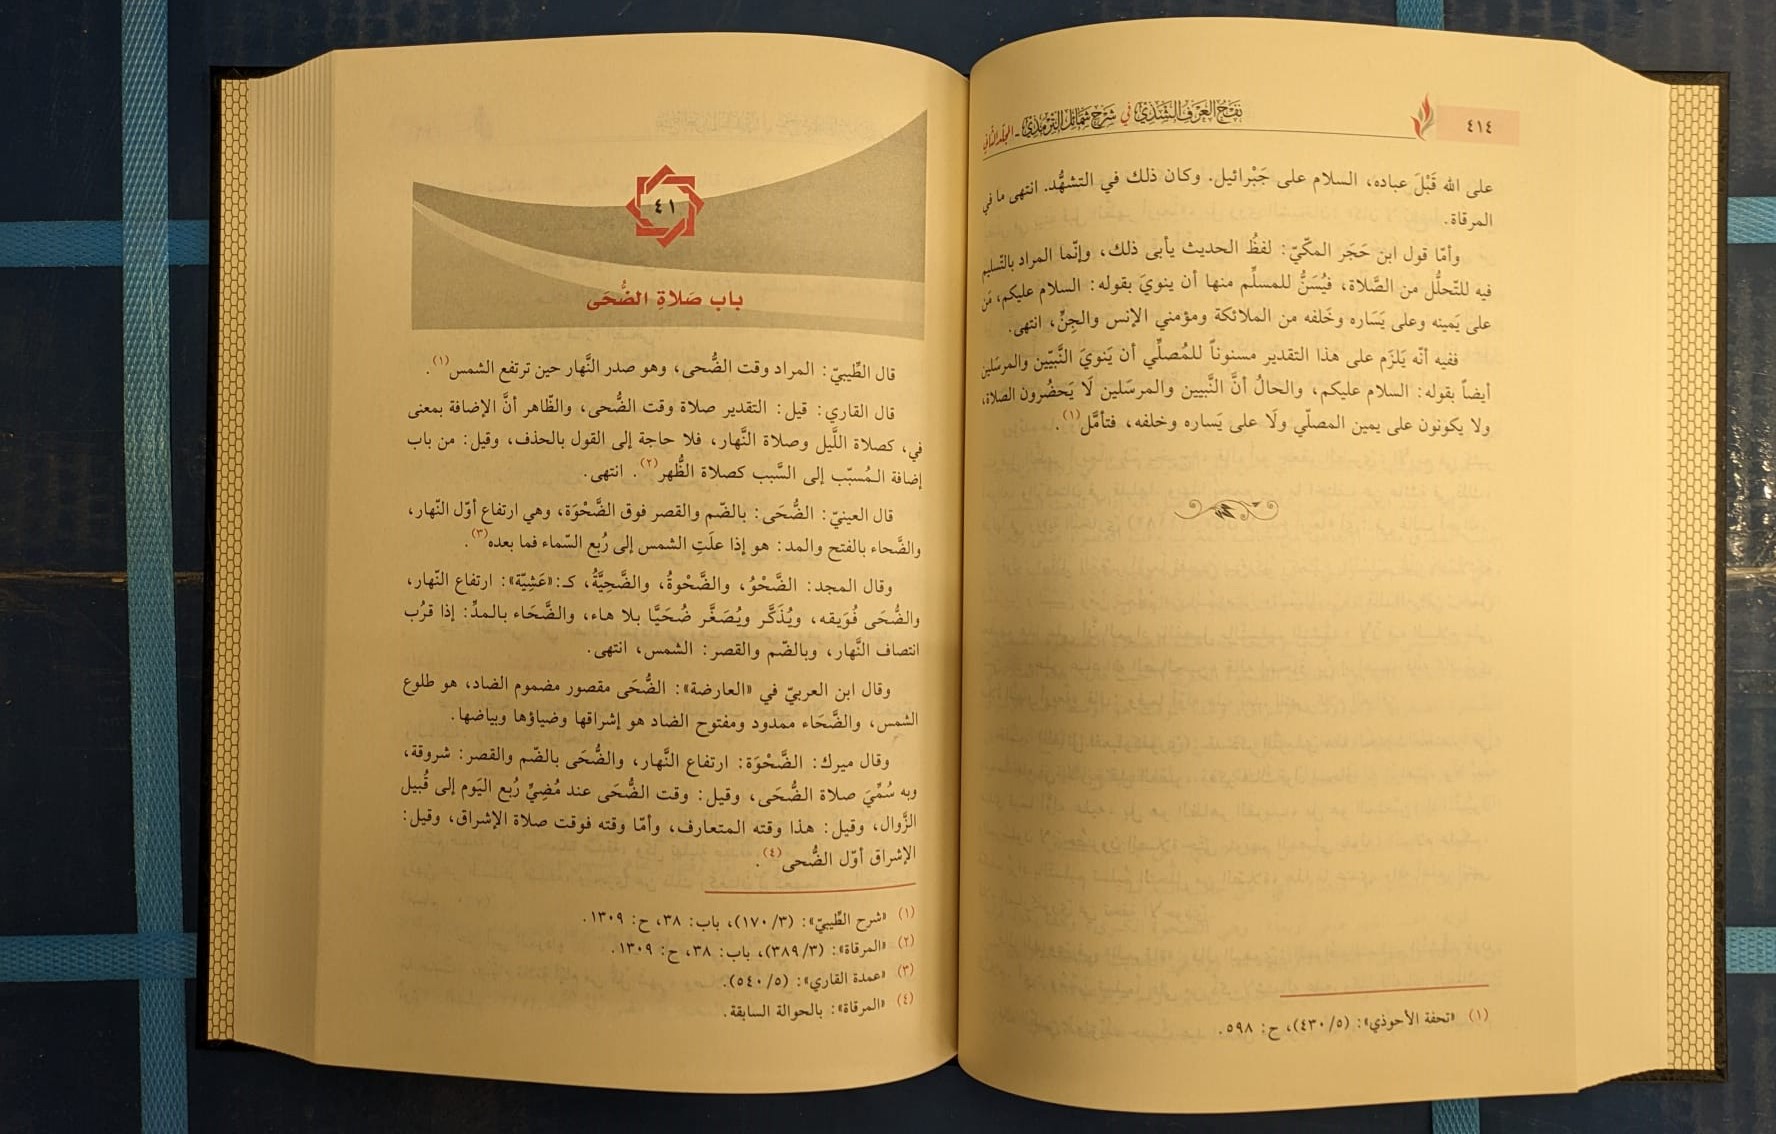 ٤١٤
نَفْحُ العَرْفِ الشَّذِيّ في شَرْحِ شَمَائِلِ التِّرْمِذِيّ - المجلّد الثّاني
على الله قَبْلَ عباده، السلام على جَبْرائيل. وكان ذلك في التشهُّد. انتهى ما في
المرقاة.
وأمّا قول ابن حَجَر المكّيّ: لفظُ الحديث يأبى ذلك، وإنّما المراد بالتّسليم
فيه للتّحلُّل من الصَّلاة، فيُسَنُّ للمسلِّم منها أن ينويَ بقوله: السلام عليكم، مَن
على يَمينه وعلى يَسَاره وخَلفه من الملائكة ومؤمني الإنس والجِنِّ، انتهى.
ففيه أنّه يَلزَم على هذا التقدير مسنوناً للمُصلِّي أن يَنويَ النَّبيّين والمرسَلين
أيضاً بقوله: السلام عليكم، والحالُ أنَّ النَّبيين والمرسَلين لَا يَحضُرون الصلاة،
ولا يكونون على يمين المصلّي ولَا على يَساره وخلفه، فتأمَّل(١).
(١) «تحفة الأحوذي»: (٤٣٠/٥)، ح: ٥٩٨.
٤١
باب صَلاةِ الضُّحَى
قال الطِّيبيّ: المراد وقت الضُّحى، وهو صدر النَّهار حين ترتفع الشمس(١).
قال القاري: قيل: التقدير صلاة وقت الضُّحى، والظّاهر أنَّ الإضافة بمعنى
في، كصلاة اللَّيل وصلاة النَّهار، فلا حاجة إلى القول بالحذف، وقيل: من باب
إضافة المُسبّب إلى السَّبب كصلاة الظُّهر(٢). انتهى.
قال العينيّ: الضُّحَى: بالضّم والقصر فوق الضَّحْوَة، وهي ارتفاع أوّل النّهار،
والضَّحاء بالفتح والمد: هو إذا علَتِ الشمس إلى رُبع السّماء فما بعده(٣).
وقال المجد: الضَّحْوُ، والضَّحْوةُ، والضَّحِيَّةُ، كـ:«عَشِيّة»: ارتفاع النّهار،
والضُّحَى فُوَيقه، ويُذَكَّر ويُصَغَّر ضُحَيًّا بلا هاء، والضَّحَاء بالمدِّ: إذا قرُب
انتصاف النَّهار، وبالضّم والقصر: الشمس، انتهى.
وقال ابن العربيّ في «العارضة»: الضُّحَى مقصور مضموم الضاد، هو طلوع
الشمس، والضَّحَاء ممدود ومفتوح الضاد هو إشراقها وضياؤها وبياضها.
وقال ميرك: الضَّحْوَة: ارتفاع النَّهار، والضُّحَى بالضّم والقصر: شروقة،
وبه سُمِّيَ صلاة الضُّحَى، وقيل: وقت الضُّحَى عند مُضِيِّ رُبع اليَوم إلى قُبيل
الزَّوال، وقيل: هذا وقته المتعارف، وأمّا وقته فوقت صلاة الإشراق، وقيل:
الإشراق أوّل الضُّحى(٤).
(١) «شرح الطِّيبيّ»: (١٧٠/٣)، باب: ٣٨، ح: ١٣٠٩.
(٢) «المرقاة»: (٣٨٩/٣)، باب: ٣٨، ح: ١٣٠٩.
(٣) «عمدة القاري»: (٥٤٠/٥).
(٤) «المرقاة»: بالحوالة السابقة.